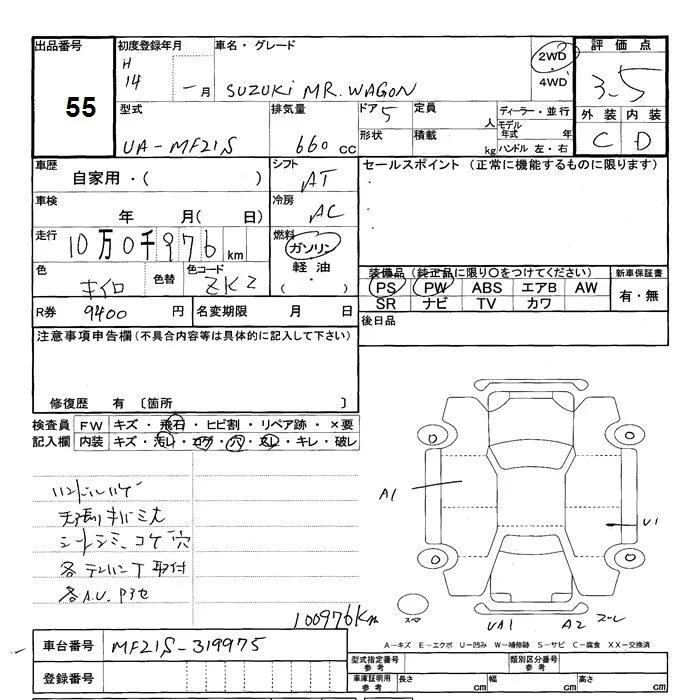 出品番号 初度登録年月 車名・グレード 2WD 評価点
55 H 14 年 一月 SUZUKI MR.WAGON 4WD 3-5
型式 排気量 ドア 5 定員 人 ディーラー・並行 外装 内装
UA-MF21S 660 cc 形状 積載 kg モデル年式 年 C D
ハンドル 左・右
車歴 シフト セールスポイント (正常に機能するものに限ります)
自家用・( ) AT
車検 冷房
年 月( 日) AC
走行 燃料
10万0千976km ガソリン
色 色替 色コード 軽油 装備品 (純正品に限り○をつけてください) 新車保証書
キイロ ZKZ ( ・ ) PS PW ABS エアB AW 有・無
SR ナビ TV カワ
R券 9400 円 名変期限 月 日 後日品
注意事項申告欄(不具合内容等は具体的に記入して下さい)
修復歴 有 〔箇所 〕
検査員 FW キズ・飛石・ヒビ割・リペア跡・×要
記入欄 内装 キズ・汚レ・コゲ・穴・スレ・キレ・破レ
ハンドルハゲ
シートシミ、コゲ穴
A1 U1
100976Km スペア UA1 A2
A-キズ E-エクボ U-凹み W-補修跡 S-サビ C-腐食 XX-交換済
車台番号 MF21S-319975 型式指定番号 参考 類別区分番号 参考
登録番号 車庫証明用 参考 長さ cm 幅 cm 高さ cm